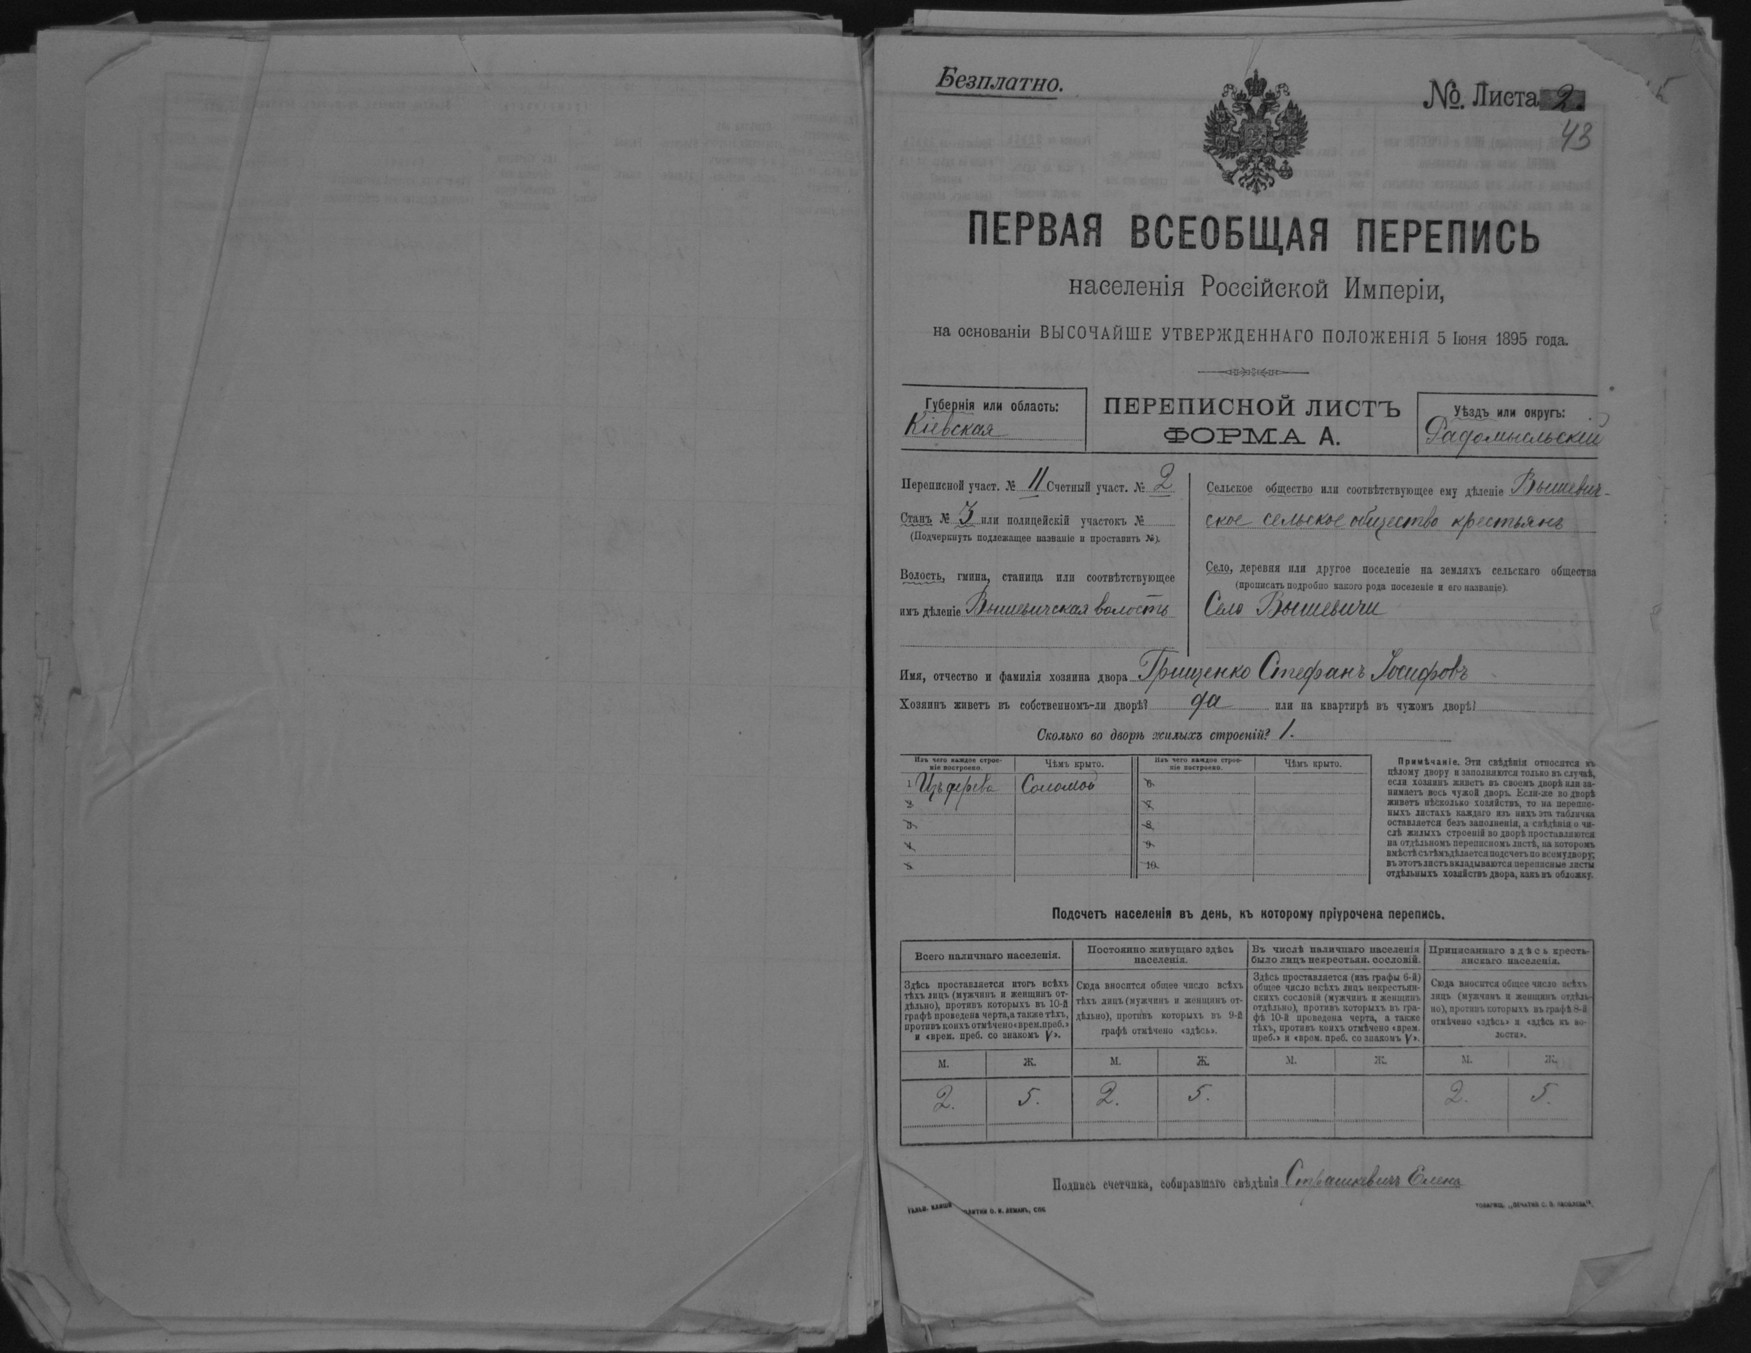 Безплатно.
№. Листа 2.
43
ПЕРВАЯ ВСЕОБЩАЯ ПЕРЕПИСЬ
населенія Россійской Имперіи,
на основаніи ВЫСОЧАЙШЕ УТВЕРЖДЕННАГО ПОЛОЖЕНІЯ 5 Іюня 1895 года.
Губернія или область:
Кіевская
ПЕРЕПИСНОЙ ЛИСТЪ
ФОРМА А.
Уѣздъ или округъ:
Радомысльскій
Переписной участ. № 11 Счетный участ. № 2
Станъ № 3 или полицейскій участокъ №
(Подчеркнуть подлежащее названіе и проставить №).
Волость, гмина, станица или соотвѣтствующее
имъ дѣленіе Вышевичская волость
Сельское общество или соотвѣтствующее ему дѣленіе Вышевич-
ское сельское общество крестьянъ
Село, деревня или другое поселеніе на земляхъ сельскаго общества
(прописать подробно какого рода поселеніе и его названіе).
Село Вышевичи
Имя, отчество и фамилія хозяина двора Грищенко Стефанъ Іосифовъ
Хозяинъ живетъ въ собственномъ-ли дворѣ? да или на квартирѣ въ чужомъ дворѣ?
Сколько во дворѣ жилыхъ строеній? 1.
Изъ чего каждое строе-
ніе построено.
Чѣмъ крыто.
Изъ чего каждое строе-
ніе построено.
Чѣмъ крыто.
1 Изъ дерева Соломой
2
3
4
5
6
7
8
9
10
Примѣчаніе. Эти свѣдѣнія относятся къ
цѣлому двору и заполняются только въ случаѣ,
если хозяинъ живетъ въ своемъ дворѣ или за-
нимаетъ весь чужой дворъ. Если-же во дворѣ
живетъ нѣсколько хозяйствъ, то на перепис-
ныхъ листахъ каждаго изъ нихъ эта табличка
оставляется безъ заполненія, а свѣдѣнія о чи-
слѣ жилыхъ строеній во дворѣ проставляются
на отдѣльномъ переписномъ листѣ, на которомъ
вмѣстѣ съ тѣмъ дѣлается подсчетъ по всему двору;
въ этотъ листъ вкладываются переписные листы
отдѣльныхъ хозяйствъ двора, какъ въ обложку.
Подсчетъ населенія въ день, къ которому пріурочена перепись.
Всего наличнаго населенія.
Здѣсь проставляется итогъ всѣхъ
тѣхъ лицъ (мужчинъ и женщинъ от-
дѣльно), противъ которыхъ въ 10-й
графѣ проведена черта, а также тѣхъ,
противъ коихъ отмѣчено «врем. преб.»
и «врем. преб. со знакомъ V».
Постоянно живущаго здѣсь
населенія.
Сюда вносится общее число всѣхъ
тѣхъ лицъ (мужчинъ и женщинъ от-
дѣльно), противъ которыхъ въ 9-й
графѣ отмѣчено «здѣсь».
Въ числѣ наличнаго населенія
было лицъ некрестьян. сословій.
Здѣсь проставляется (изъ графы 6-й)
общее число всѣхъ лицъ некрестьян-
скихъ сословій (мужчинъ и женщинъ
отдѣльно), противъ которыхъ въ гра-
фѣ 10-й проведена черта, а также
тѣхъ, противъ коихъ отмѣчено «врем.
преб.» и «врем. преб. со знакомъ V».
Приписаннаго здѣсь кресть-
янскаго населенія.
Сюда вносится общее число всѣхъ
лицъ (мужчинъ и женщинъ отдѣль-
но), противъ которыхъ въ графѣ 8-й
отмѣчено «здѣсь» и «здѣсь къ во-
лости».
М. Ж. М. Ж. М. Ж. М. Ж.
2. 5. 2. 5. 2. 5.
Подпись счетчика, собиравшаго свѣдѣнія Страшкевичъ Елена